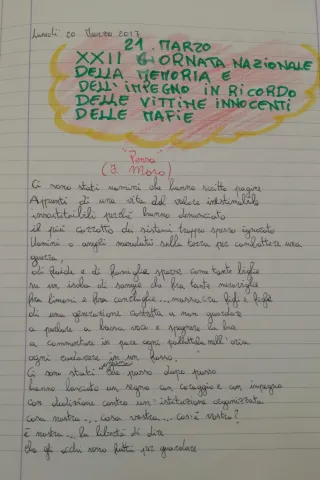 Lunedì 20 Marzo 2017
21 MARZO
XXII GIORNATA NAZIONALE
DELLA MEMORIA E
DELL'IMPEGNO IN RICORDO
DELLE VITTIME INNOCENTI
DELLE MAFIE
"Pensa"
(F. Moro)
Ci sono stati uomini che hanno scritto pagine
Appunti di una vita dal valore inestimabile
insostituibili perché hanno denunciato
il più corrotto dei sistemi troppo spesso ignorato
Uomini o angeli mandati sulla terra per combattere una
guerra,
di faide e di famiglie sparse come tante biglie
su un isola di sangue che fra tante meraviglie
fra limoni e fra conchiglie... massacra figli e figlie
di una generazione costretta a non guardare
a parlare a bassa voce e spegnere la luce
a commentare in pace ogni pallottola nell'aria
ogni cadavere in un fosso.
Ci sono stati uomini che passo dopo passo
hanno lasciato un segno con coraggio e con impegno
con dedizione contro un'istituzione organizzata
cosa nostra... cosa vostra... cos'è vostro?
è nostra... la libertà di dire
che gli occhi sono fatti per guardare